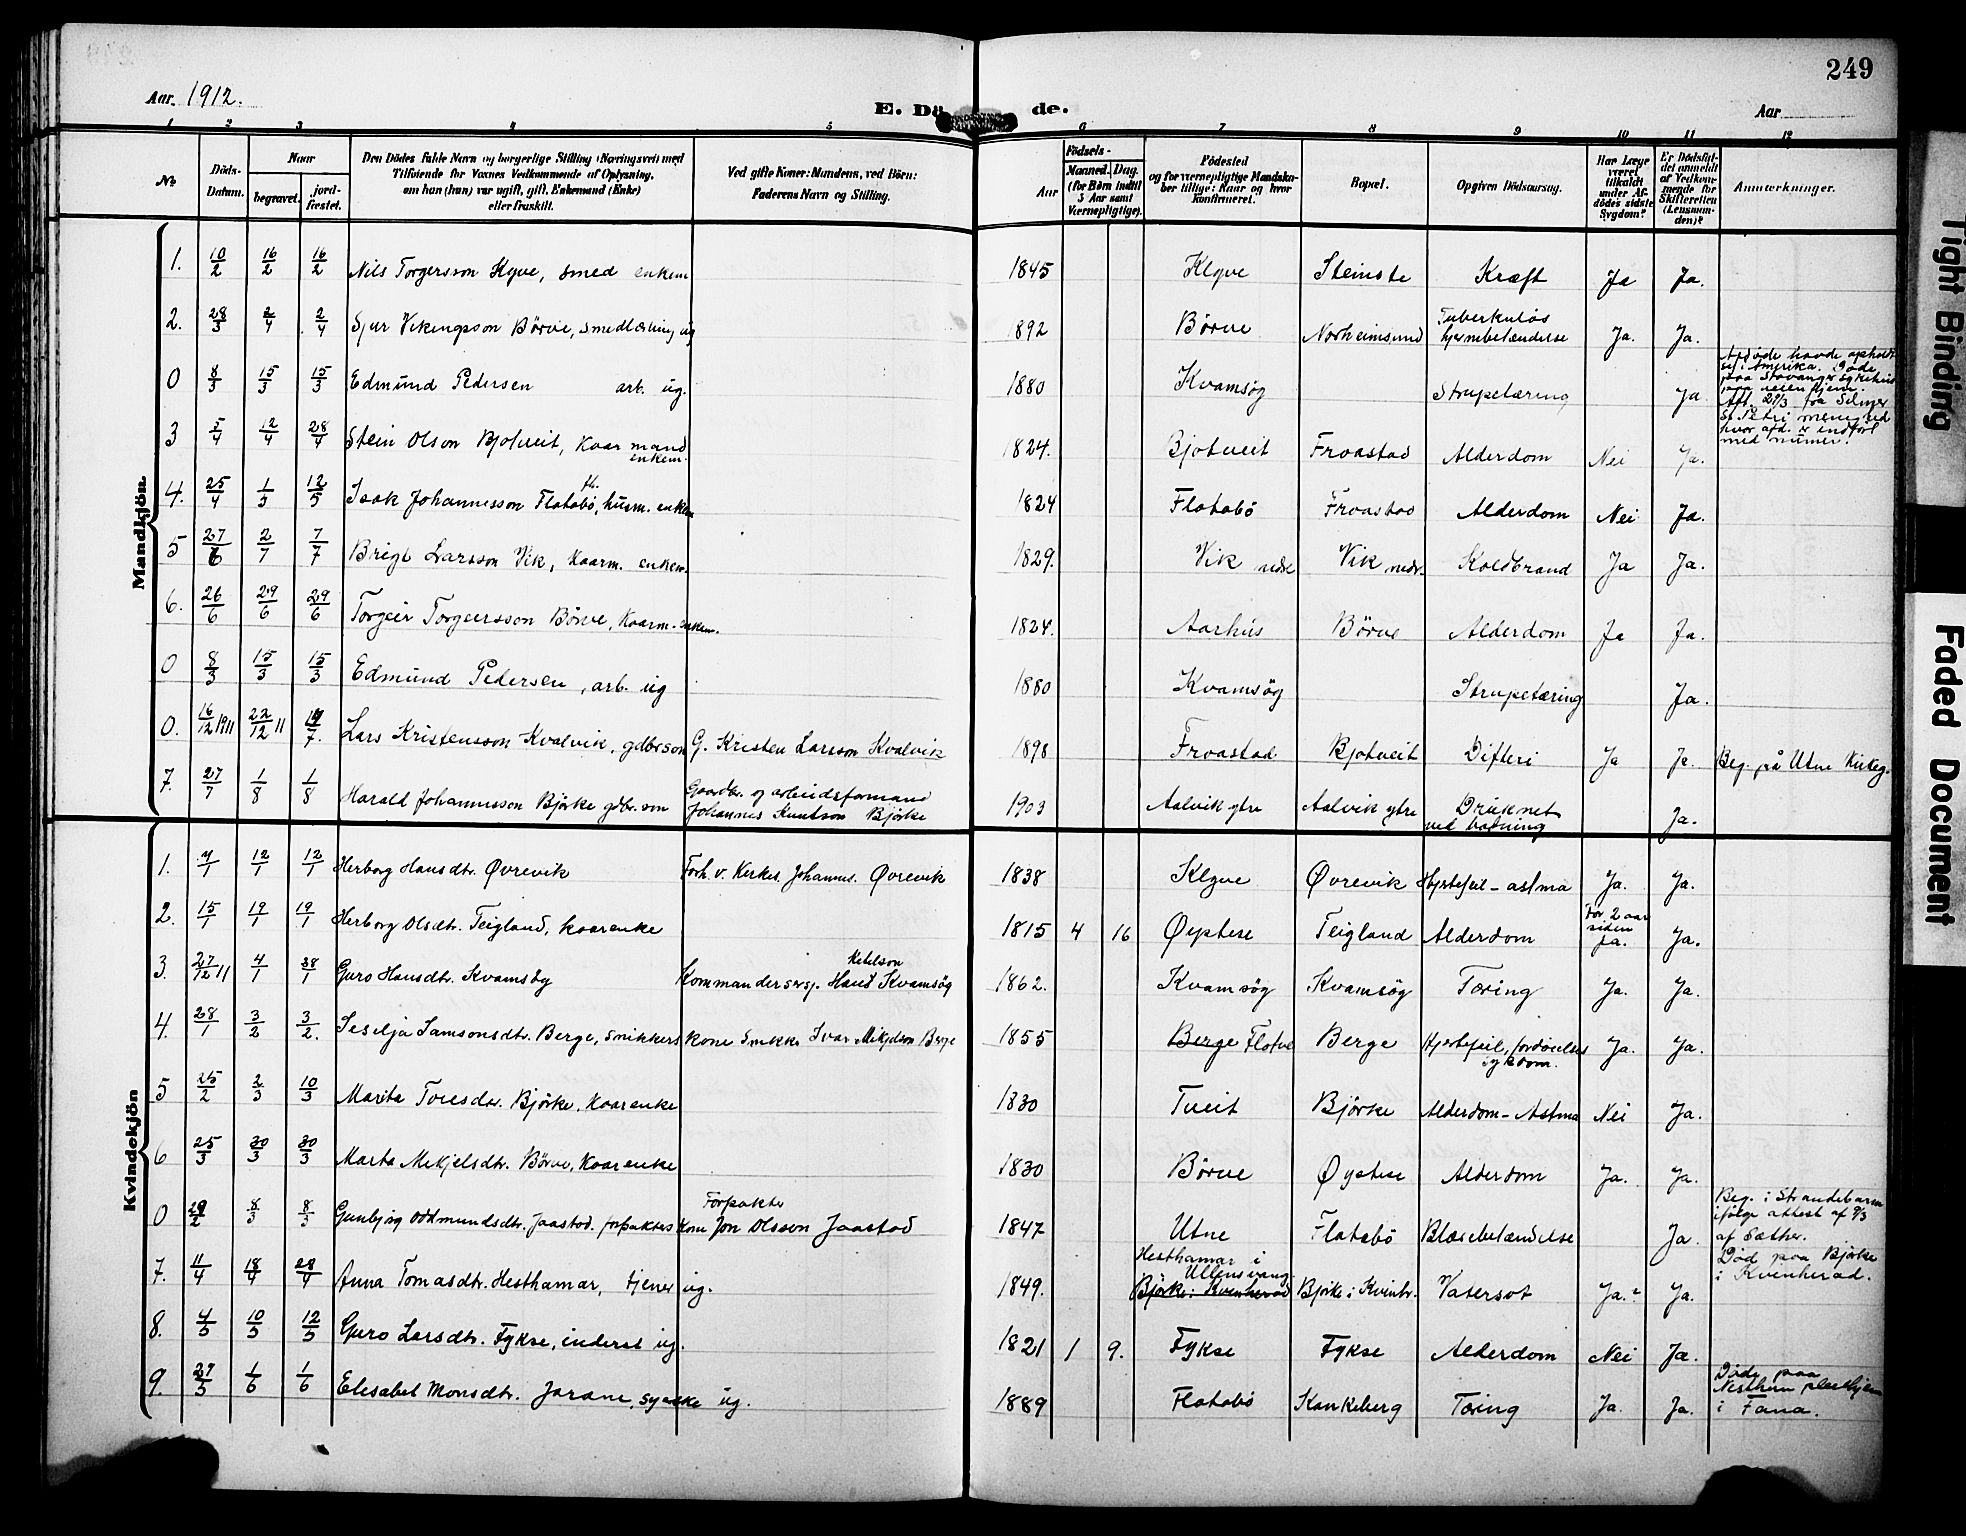 249
Aar. 1912.
E. Döde.
Aar
1 2 3 4 5 6 7 8 9 10 11 12
No
Döds-Datum.
Naar
begravet.
jord-fæstet.
Den Dödes fulde Navn og borgerlige Stilling (Næringsvei) med
Tilföiende for Voxnes Vedkommende af Oplysning,
om han (hun) var ugift, gift, Enkemand (Enke)
eller fraskilt.
Ved gifte Koner: Mandens, ved Börn:
Faderens Navn og Stilling.
Födsels-
Aar
Maaned. Dag.
(for Börn indtil
5 Aar samt
Værnepligtige).
Födested
og for værnepligtige Mandska-
ber tillige: Naar og hvor
konfirmeret.
Bopæl.
Opgiven Dödsaarsag.
Har Læge
været
tilkaldt
under Af-
dödes sidste
Sygdom?
Er Dödsfal-
det anmeldt
af Vedkom-
mende for
Skifteretten
(Lensman-
den)?
Anmærkninger.
Mandkjön
1. 10/2 16/2 16/2 Nils Torgersson Klyve, smed enkem 1845 Klyve Steinstø Kræft Ja Ja.
2. 28/3 2/4 2/4 Sjur Vikingsson Børve, smedlærling ug 1892 Børve Norheimsund Tuberkuløs hjernebetændelse Ja. Ja.
0 8/3 15/3 15/3 Edmund Pedersen arb. ug. 1880 Kvamsøg Strupetæring Ja
Afdøde havde opholdt
sig i Amerika. Døde
paa Stavanger sykehus
paa veien hjem.
Att. 29/3 fra
St. Petri menighed
hvor afd. er indført
med numer.
3 5/4 12/4 28/4 Stein Olson Bjotveit, kaarmand enkem. 1824. Bjotveit Froastad Alderdom Nei Ja.
4. 25/4 1/5 12/5 Isak Johannesson Flatabø, husm. enkem 1824 Flatabø Froastad Alderdom Nei Ja.
5 27/6 2/7 7/7 Brigt Larsson Vik, kaarm. enkem. 1829. Vik nedre Vik nedr. Koldbrand Ja Ja.
6. 26/6 29/6 29/6 Torgeir Torgeirsson Børve, kaarm. enkem. 1824. Aarhus Børve Alderdom Ja Ja.
0 8/3 15/3 15/3 Edmund Pedersen, arb. ug 1880 Kvamsøg Strupetæring Ja.
0. 16/12 1911 22/12 11 /7. Lars Kristensson Kvalvik, gdbr. son G. Kristen Larsson Kvalvik 1898 Froastad Bjotveit Difteri Ja Ja. Beg. på Utne Kirkeg.
7. 27/7 1/8 1/8 Harald Johannesson Bjørke gdbr. son Gaardbr. og arbeidsformand Johannes Knutson Bjørke 1903 Aalvik ytre Aalvik ytre Druknet ved badning Ja.
Kvindekjön
1. 7/1 12/1 12/1 Herborg Hansdtr. Øvrevik Forh. v. Kirkes. Johannes. Øvrevik 1838 Klyve Øvrevik Hjertefeil - astma Ja. Ja.
2. 15/1 19/1 19/1 Herborg Olsdtr. Teigland, kaarenke 1815 4 16 Øystese Teigland Alderdom For 2 aar siden Ja. Ja.
3. 27/12 11 4/1 28/1 Guro Hansdtr. Kvamsøg Kommandersersj. Hans Ketelson Kvamsøg 1862. Kvamsøg Kvamsøg Tæring Ja. Ja.
4. 28/1 3/2 3/2. Seselja Samsonsdtr. Berge, snikkers kone Snikker Ivar Mikjelson Berge 1855 Berge Flotve Berge Hjertefeil, fordøielses sykdom. Ja. Ja.
5 25/2 2/3 10/3 Marita Toresdtr. Bjørke, kaarenke 1830 Tveit Bjørke Alderdom - Astma Nei Ja.
6 25/3 30/3 30/3 Marta Mikjelsdtr. Børve, kaarenke 1830 Børve Øystese Alderdom Ja. Ja.
0 29/2 8/3 8/3 Gunbjørg Oddmundsdtr. Jaastad. forpakters kone Forpakter Jon Olsson Jaastad 1847 Utne Flatabø Blærebetændelse Ja.
Beg. i Strandebarm
ifølge attest af 9/3
af Sæther.
7. 11/4 18/4 28/4 Anna Tomasdtr. Hesthamar, tjener ug. 1849. Hesthamar i Ullensvang Bjørke i Kvinherad Bjørke i Kvinhr. Vatersot Ja.? Ja.
Død paa Bjørke
i Kvenherad.
8. 4/5 10/5 12/5 Guro Larsdtr. Fykse, inderst ug. 1821 1 9. Fykse Fykse Alderdom Nei Ja.
9. 27/5 1/6 1/6 Elisabet Monsdtr. Jarane, syerske ug. 1889 Flatabø Kankeberg Tæring Ja. Ja.
Døde paa
Nesthun pleiehjem
i Fana.
Tight Binding
Faded Document